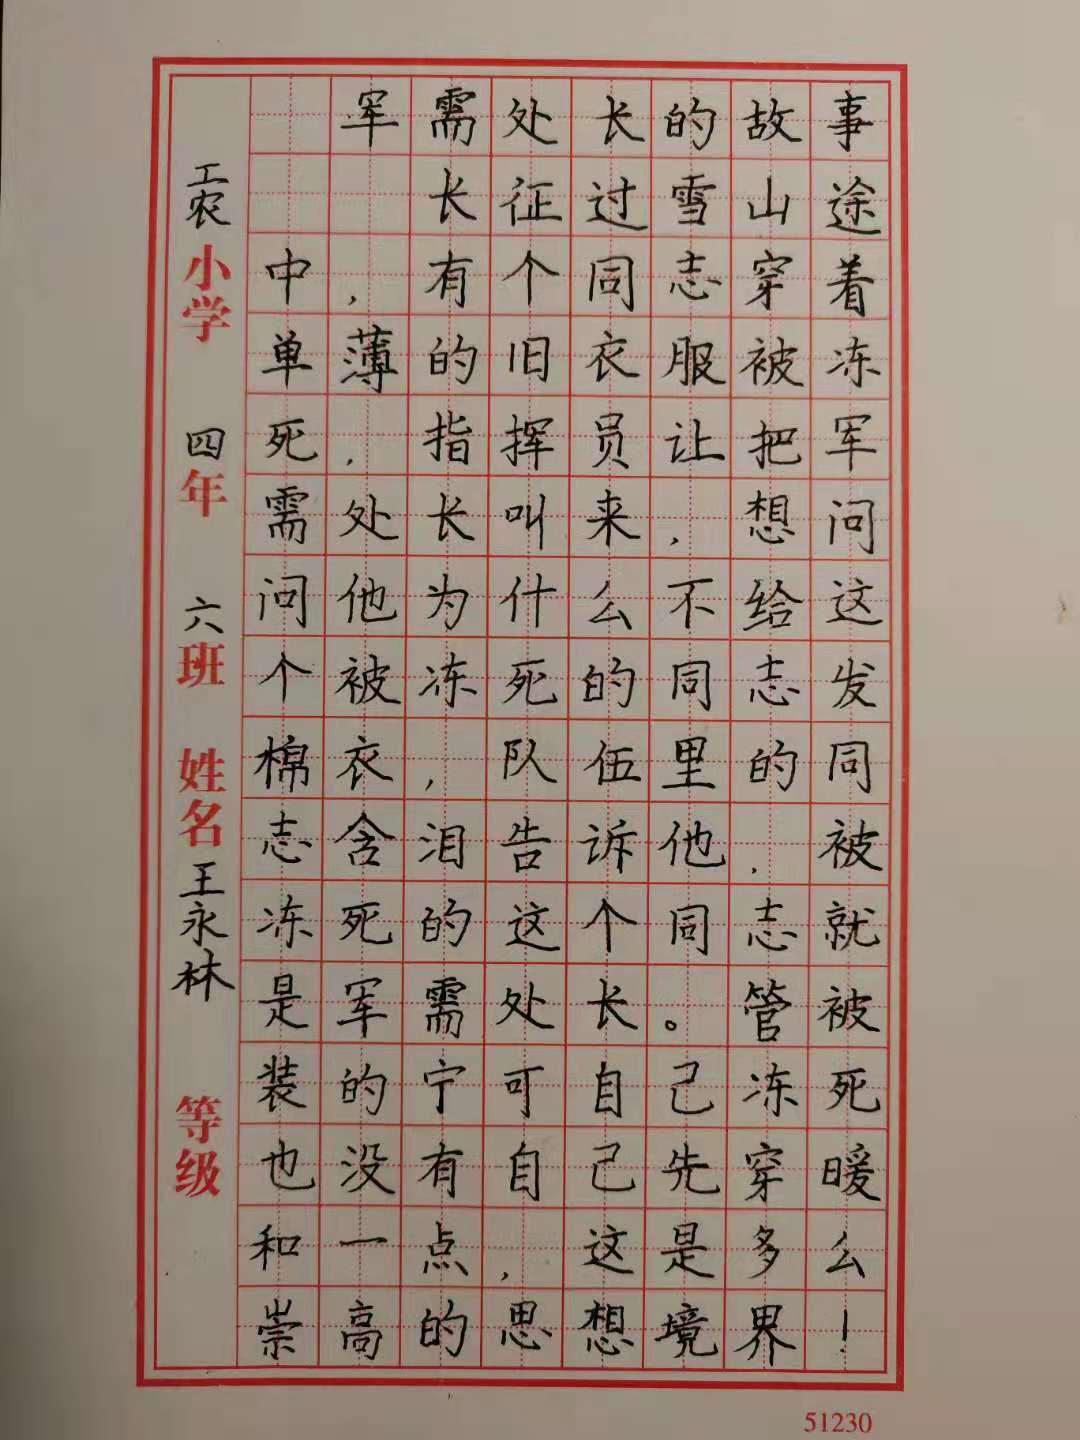 军需处长的故事
长征过雪山途
中，有个同志穿着
单薄的旧衣服被冻
死，指挥员让把军
需处长叫来，想问
问他为什么不给这
个被冻死的同志发
棉衣，队伍里的同
志含泪告诉他，被
冻死的这个同志就
是军需处长。管被
装的宁可自己冻死
也没有自己先穿暖
和一点，这是多么
崇高的思想境界！
工农小学 四年 六班 姓名王永林 等级
51230